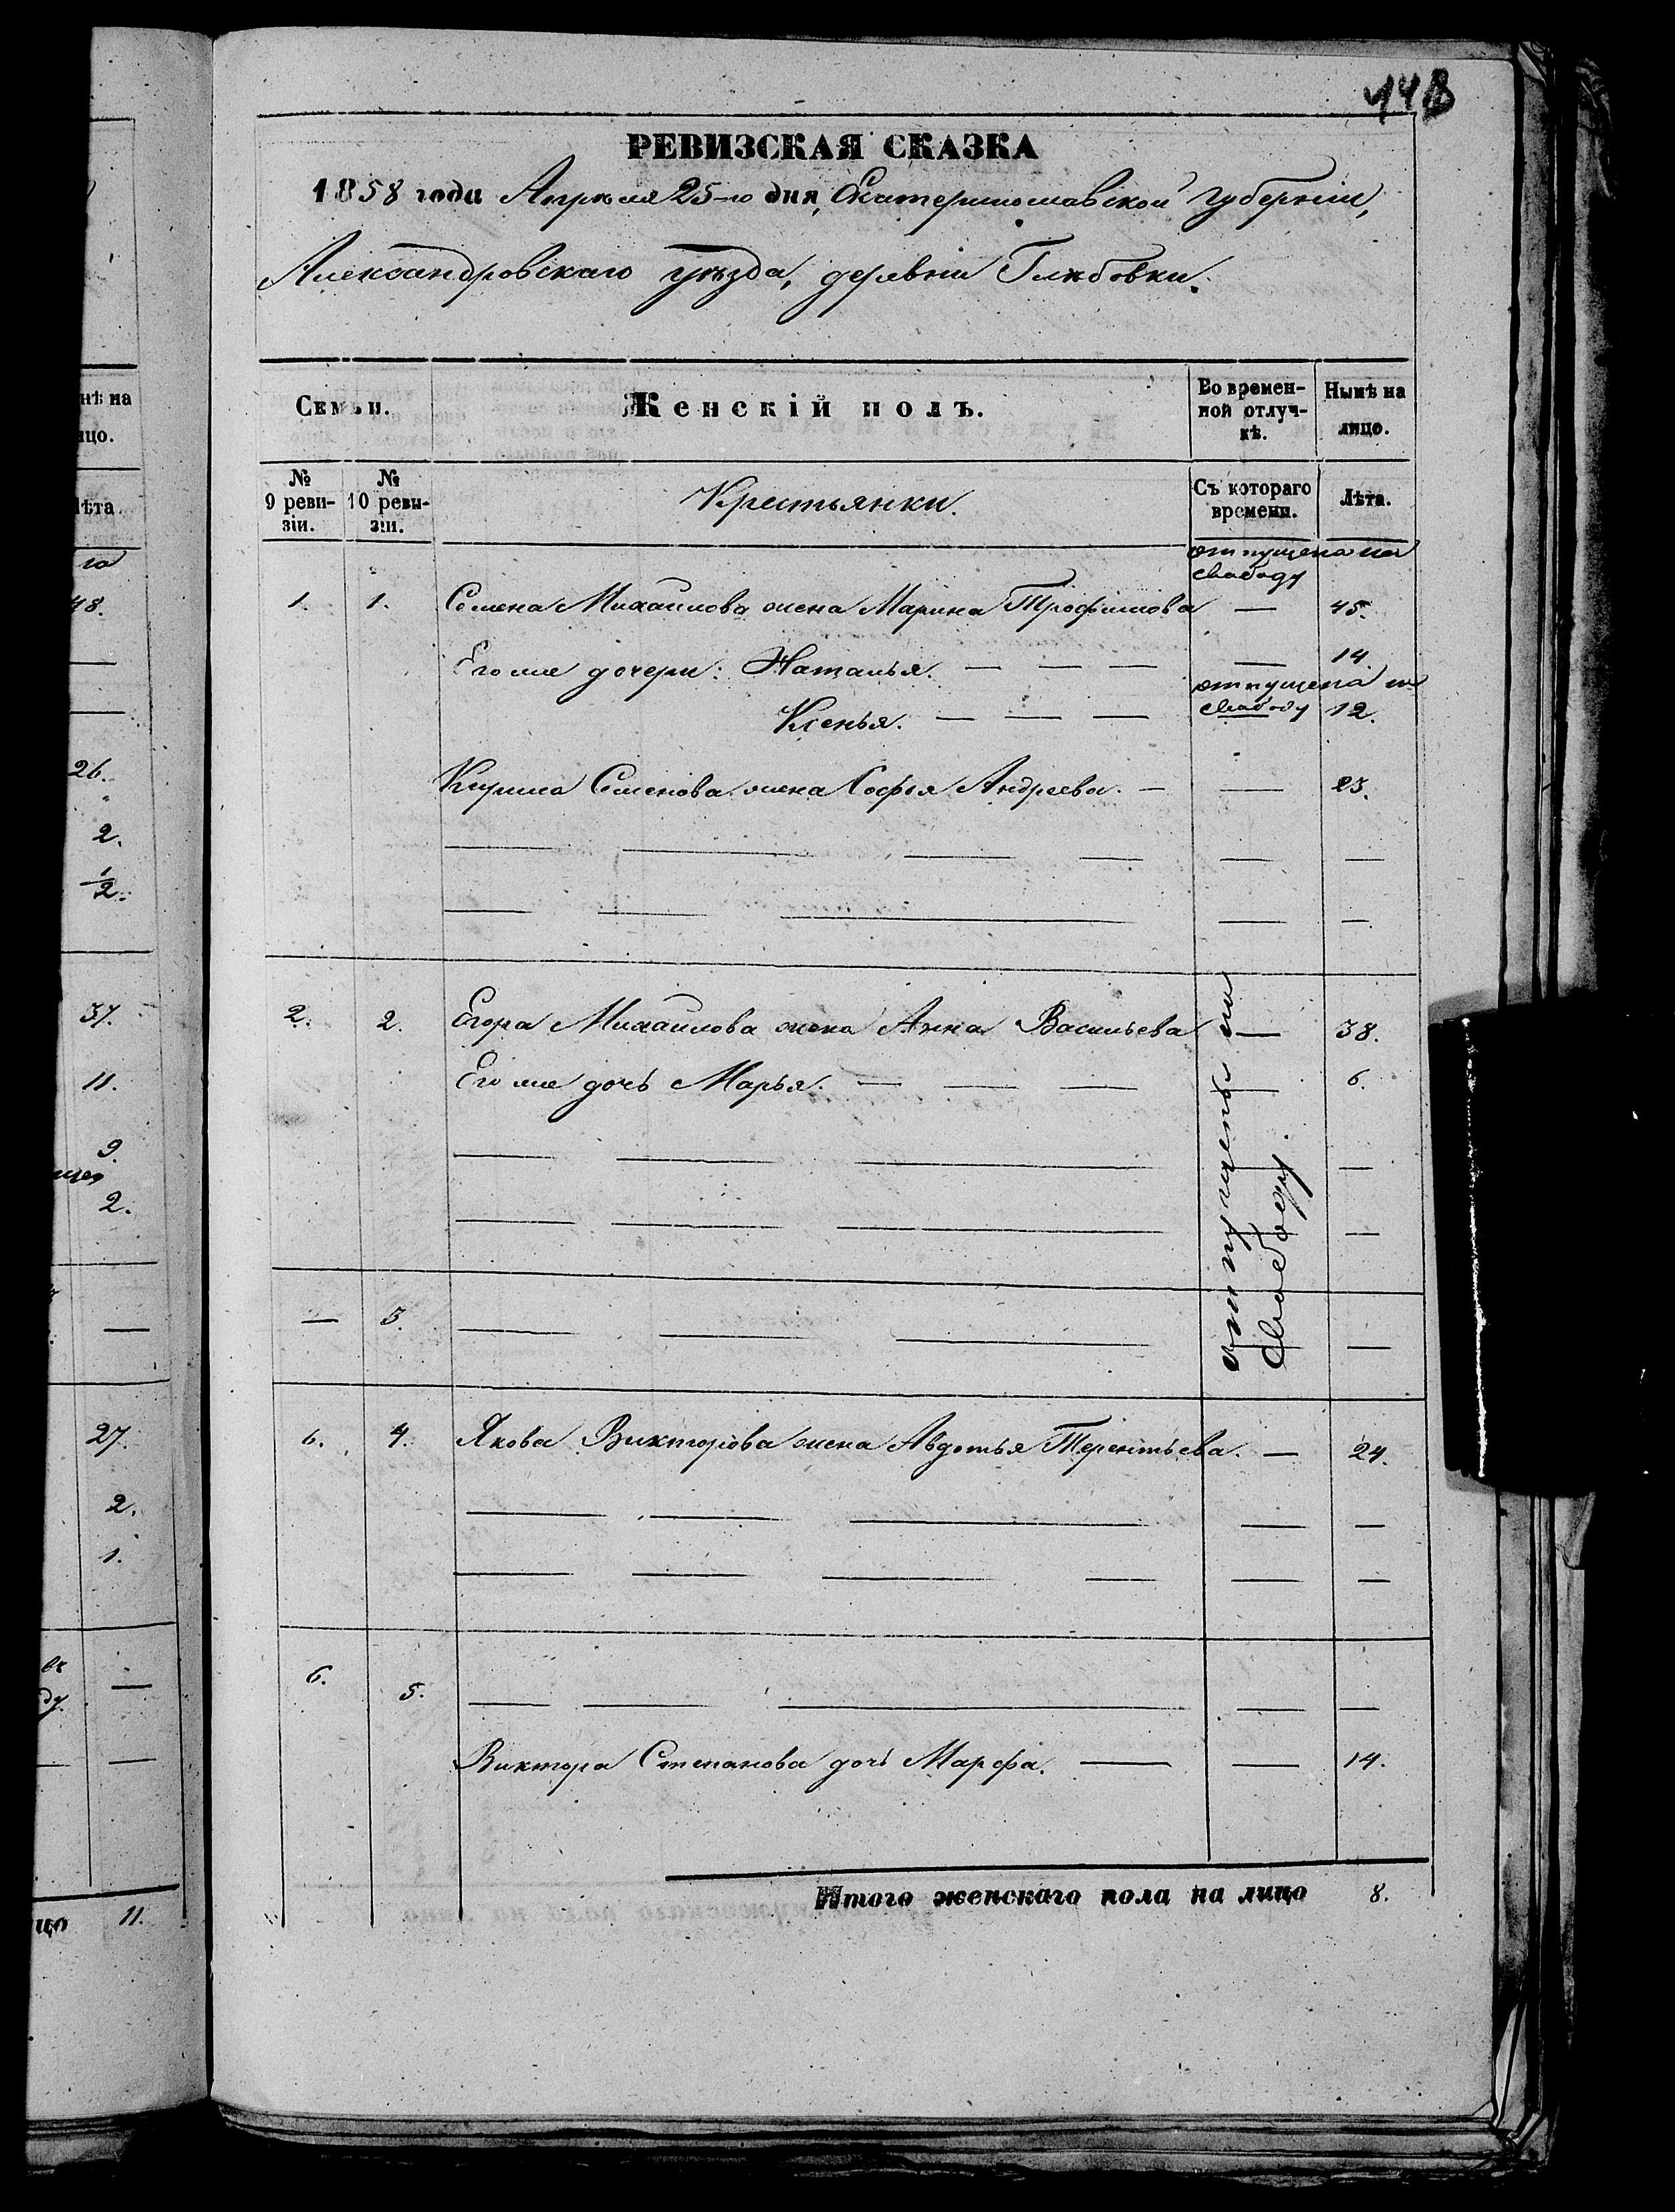 448
РЕВИЗСКАЯ СКАЗКА
1858 года Апрѣля 25-го дня, Екатеринославской губерніи,
Александровскаго уѣзда, деревни Глѣбовки.
Семьи. Женскій полъ. Во времен-ной отлуч-кѣ. Нынѣ на лицо.
№ 9 реви-зіи. № 10 реви-зіи. Крестьянки. Съ котораго времени. Лѣта.
отпущена на
свободу
1. 1. Семена Михайлова жена Марина Трофимова — 45.
Его же дочери: Наталья. — — — — 14.
отпущена на
Ксенья. — — — свободу 12.
Кирила Семенова жена Софья Андреева. — — 23.
2. 2. Егора Михайлова жена Анна Васильева — 38.
Его же дочь Марья. — — — — 6.
отпущены на
свободу.
— 3. — — — —
6. 4. Якова Викторова жена Авдотья Терентьева. — 24.
6. 5. — — — — —
Виктора Степанова дочь Марфа. — — 14.
Итого женскаго пола на лицо 8.
нѣ на
ицо.
ѣта.
го
48.
26.
2.
1/2.
37.
11.
9.
2.
27.
2.
1.
ду.
цо 11.